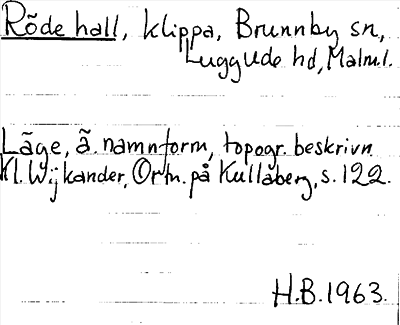 Rõde hall, klippa, Brunnby sn,
Luggude hd, Malm.l.
Läge, ä. namnform, topogr. beskrivn.
Kl. Wijkander, Ortn. på Kullaberg, s. 122.
H.B. 1963.